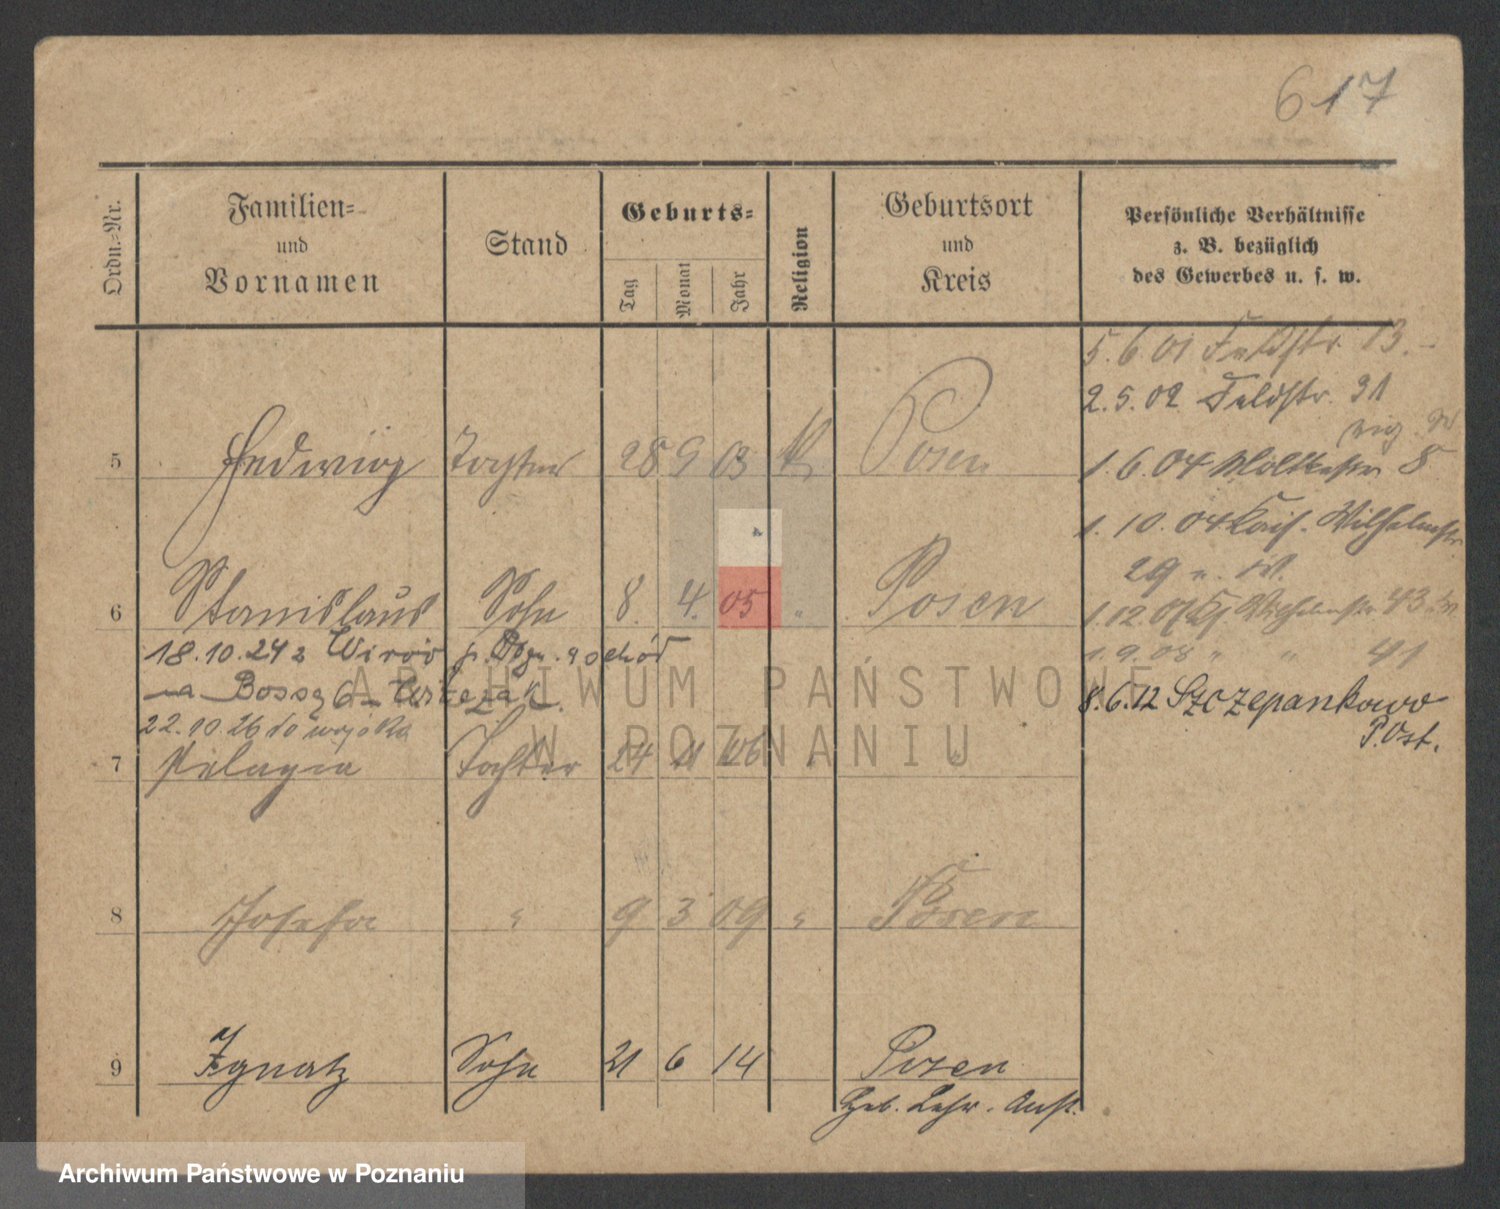 617
Ordn.=Nr.
Familien=
und
Vornamen
Stand
Geburts=
Tag
Monat
Jahr
Religion
Geburtsort
und
Kreis
Persönliche Verhältnisse
z. B. bezüglich
des Gewerbes u. s. w.
5.6.01 Feldstr. 13.
2.5.02 Feldstr. 31
5 Hedwig Tochter 28 9 03 k Posen
1.6.04 Moltkestr. 8
1.10.04 Kais. Wilhelmstr.
29
6 Stanislaus Sohn 8. 4. 05 " Posen
1.12.07 Wilhelmstr. 43
18.10.24 z Wirów
1.9.08 " " 41
8.6.12 Szczepankowo
P. Ost.
22.10.26 do wojska
7 Pelagia Tochter 24 11 06 " "
8 Josefa " 9 3 09 " Posen
9 Ignatz Sohn 21 6 14 Posen
Geb. Lehr. Anst.
ARCHIWUM PAŃSTWOWE
W POZNANIU
Archiwum Państwowe w Poznaniu